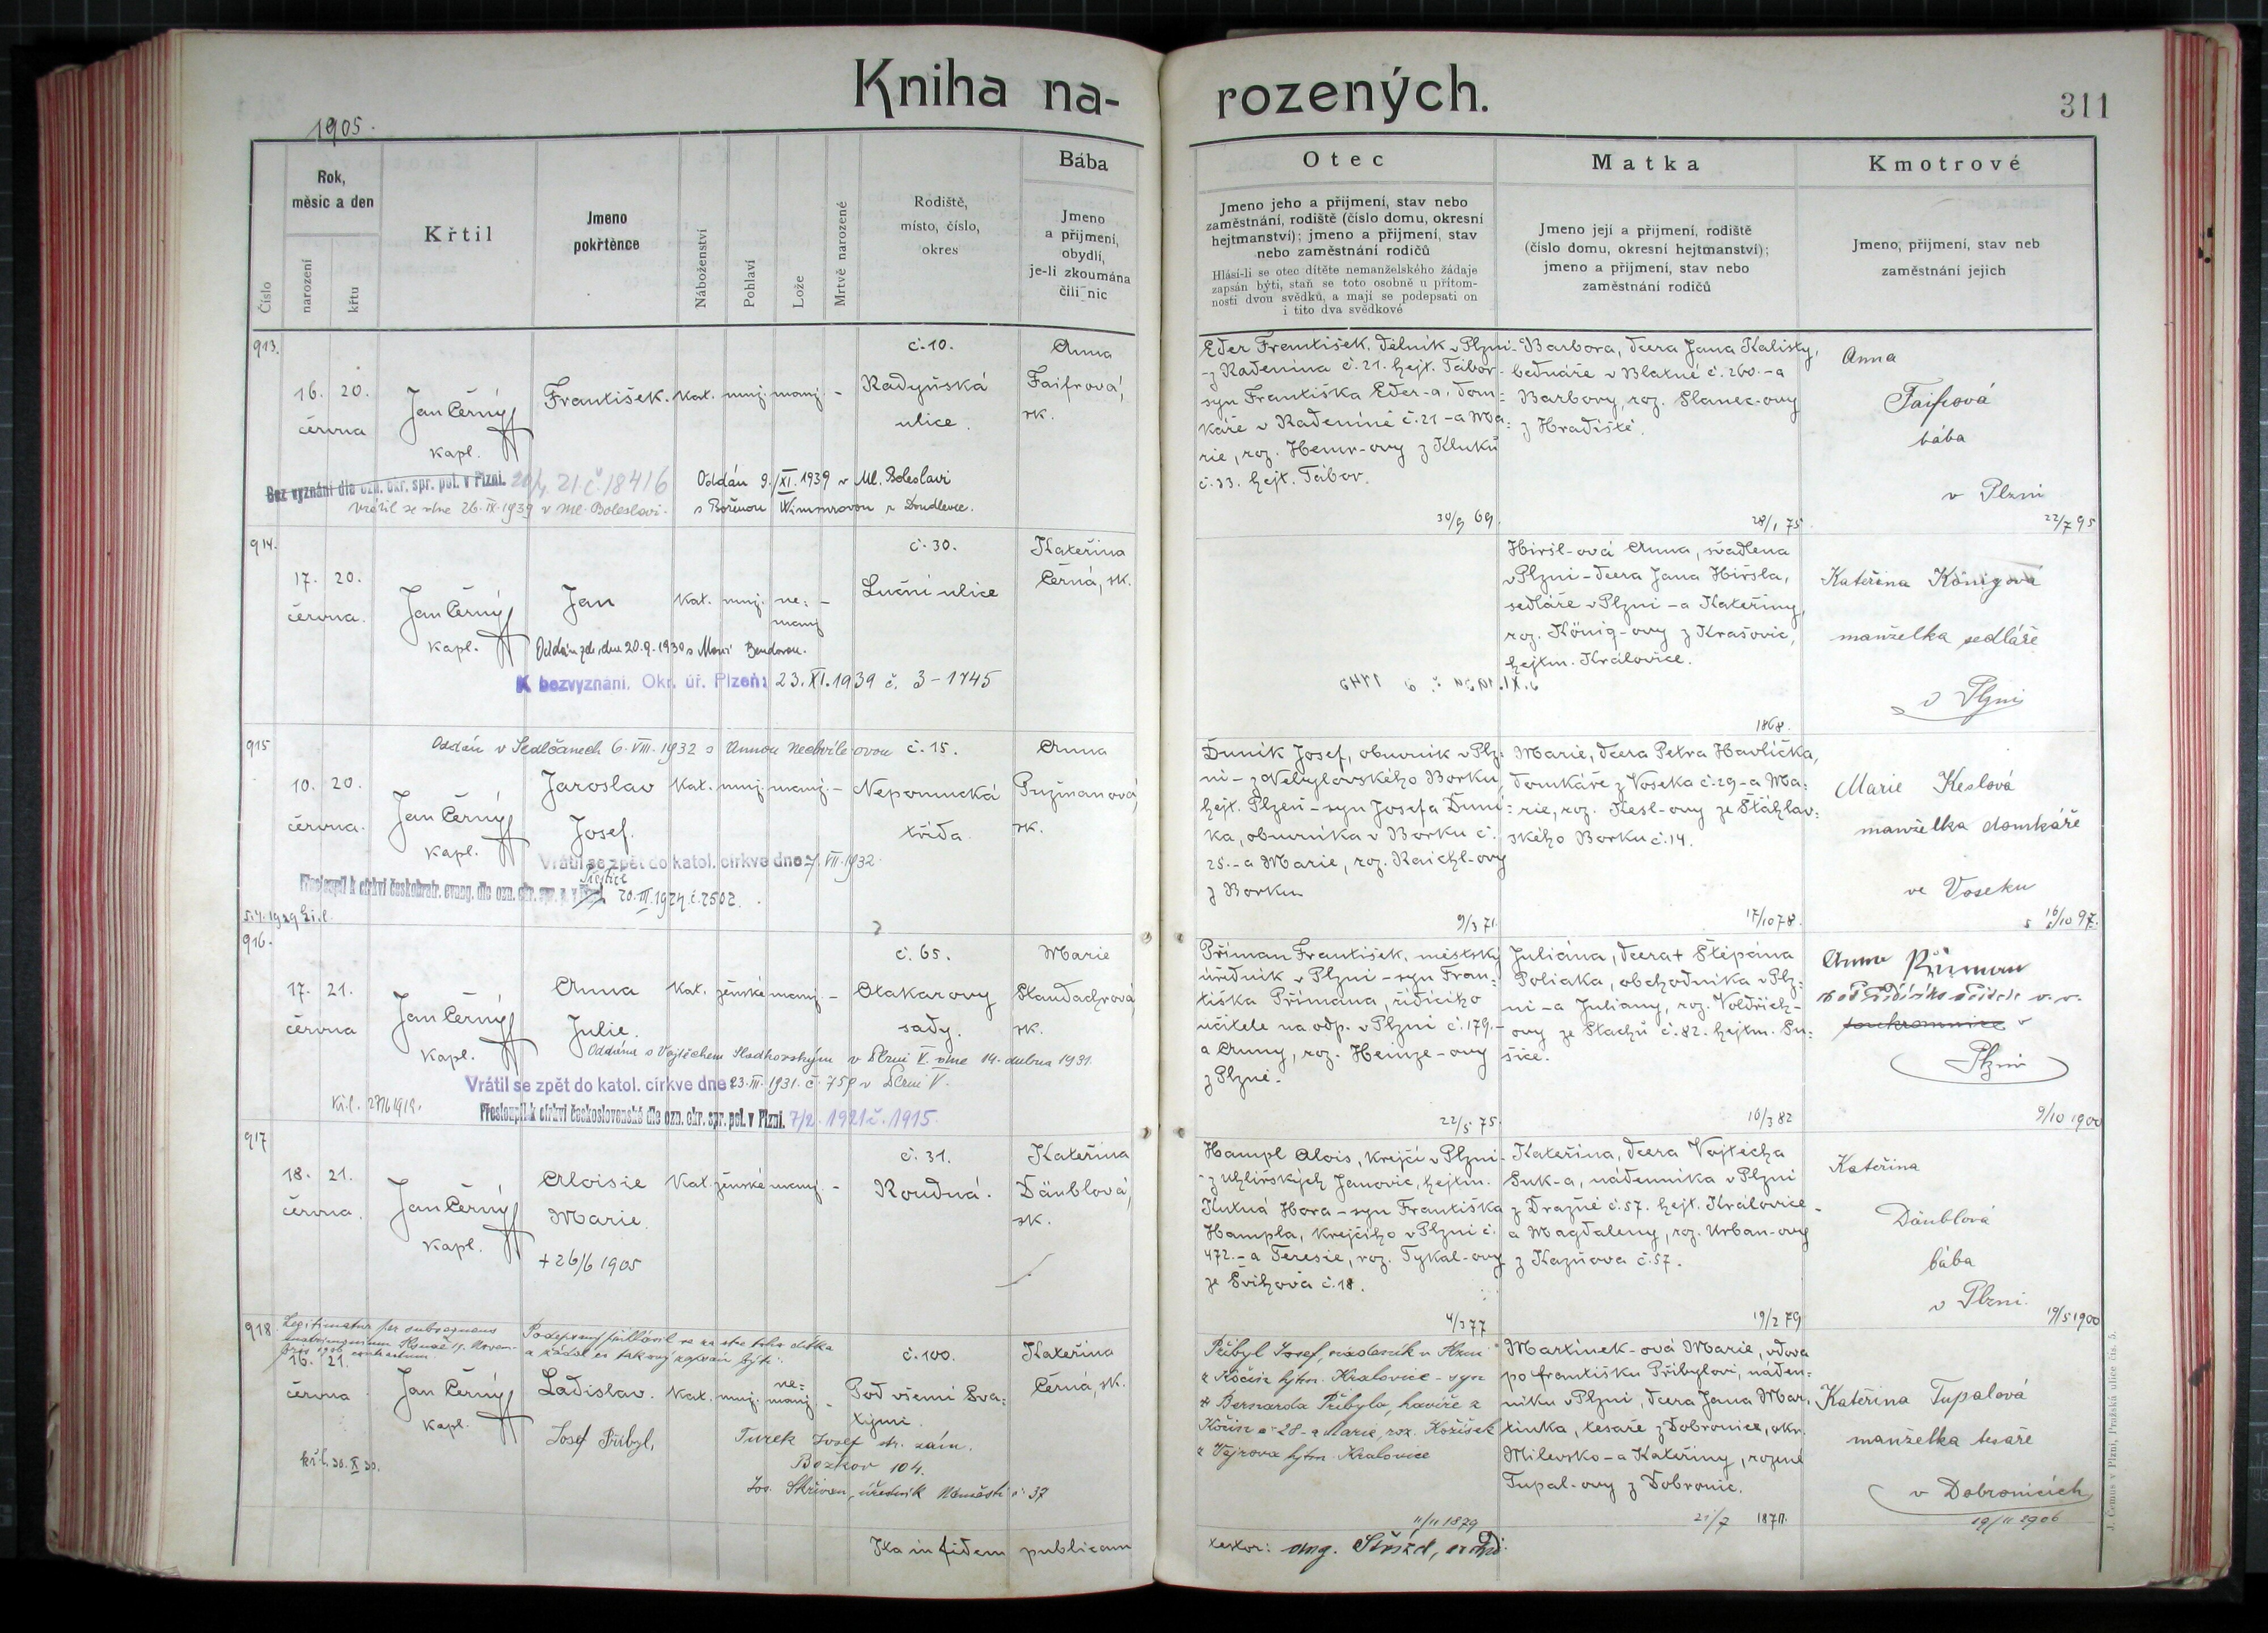 Kniha na-
rozených.
311
1905.
Číslo
Rok,
měsíc a den
narození
křtu
Křtil
Jmeno
pokřtěnce
Náboženství
Pohlaví
Lože
Mrtvě narozené
Rodiště,
místo, číslo,
okres
Bába
Jmeno
a přijmení,
obydlí,
je-li zkoumána
čili nic
Otec
Jmeno jeho a přijmení, stav nebo
zaměstnání, rodiště (číslo domu, okresní
hejtmanství); jmeno a přijmení, stav
nebo zaměstnání rodičů
Hlásí-li se otec dítěte nemanželského žádaje
zapsán býti, staň se toto osobně u přítom-
nosti dvou svědků, a mají se podepsati on
i tito dva svědkové
Matka
Jmeno její a přijmení, rodiště
(číslo domu, okresní hejtmanství);
jmeno a přijmení, stav nebo
zaměstnání rodičů
Kmotrové
Jmeno, přijmení, stav neb
zaměstnání jejich
913.
16. 20.
června
Jan Černý
kapl.
František.
kat. muj. manj. -
č. 10.
Radyňská
ulice.
Anna
Faifrová,
zk.
Bez vyznání dle ozn. okr. spr. pol. v Plzni. 20/4 21 č. 18416
Vrátil se dne 26. IX. 1939 v Ml. Boleslavi.
Oddán 9./XI. 1939 v Ml. Boleslavi
s Boženou z Doudlevec.
Eder František, dělník v Plzni -
- z Radenína č. 21. hejt. Tábor -
syn Františka Eder-a, dom-
káře v Radeníně č. 21 - a Ma-
rie, roz. z Kluků
č. 33. hejt. Tábor.
30/9 69.
Barbora, dcera Jana Kalisty,
bednáře v Blatné č. 260. - a
Barbory, roz. Slanec-ovy
z Hradiště.
28/1 75
Anna
Faifrová
bába
v Plzni
22/7 95
914.
17. 20.
června.
Jan Černý
kapl.
Jan
kat. muj. ne= -
manj
č. 30.
Luční ulice
Kateřina
Černá, zk.
Oddán zde dne 20.9.1930 s Marií Bendovou.
K bezvyznání. Okr. úř. Plzeň: 23. XI. 1939 č. 3-1745
Hiršl-ová Anna, švadlena
v Plzni - dcera Jana Hiršla,
sedláře v Plzni - a Kateřiny,
roz. König-ovy z Krašovic,
hejtm. Kralovice.
1868.
Kateřina Königová
manželka sedláře
v Plzni
915
Oddán v Sedlčanech 6. VIII. 1932 s Annou
10. 20.
června.
Jan Černý
kapl.
Jaroslav
Josef.
kat. muj. manj. -
č. 15.
Nepomucká
třída
Anna
Pužmanová,
zk.
Vrátil se zpět do katol. církve dne 7. VII. 1932.
Přestoupil k církvi českobratr. evang. dle ozn. okr. spr. p. v Přeštice 20. III. 1924 č. 2502.
Duník Josef, obuvník v Plz-
ni - z Nebylovského Borku,
hejt. Plzeň - syn Josefa Duní-
ka, obuvníka v Borku č.
25. - a Marie, roz. Raichl-ovy
z Borku
9/3 71.
Marie, dcera Petra Havlíčka,
domkáře z Voseka č. 29 - a Ma-
rie, roz. Kesl-ovy ze Štáhlav-
ského Borku č. 14.
17/10 78.
Marie Keslová
manželka domkáře
ve Voseku
16/10 97.
916.
17. 21.
června
Jan Černý
kapl.
Anna
Julie.
kat. ženské manj -
č. 65.
Otakarovy
sady.
Marie
Staudachrová,
zk.
Oddána s Vojtěchem v Plzni V. dne 14. dubna 1931
Vrátil se zpět do katol. církve dne 23. III. 1931. č. 759 v Plzni V.
Přestoupil k církvi československé dle ozn. okr. spr. pol. v Plzni. 7/2. 1921 č. 1915.
Příman František, městský
úředník v Plzni - syn Fran-
tiška Přímana, řídícího
učitele na odp. v Plzni č. 179. -
a Anny, roz. Heinze-ovy
z Plzně.
22/5 75.
Juliána, dcera + Štěpána
Poliaka, obchodníka v Plz-
ni - a Juliany, roz. Voldřich-
ovy ze Stachů č. 82. hejtm. Su-
šice.
16/3 82
Anna Příman
učitele v. v.
soukromnice v
Plzni
9/10 1900
917
18. 21.
června.
Jan Černý
kapl.
Aloisie
Marie.
+ 26/6 1905
kat. ženské manj -
č. 31.
Roudná.
Kateřina
Däublová,
zk.
Hampl Alois, krejčí v Plzni -
- z Uhlířských Janovic, hejtm.
Kutná Hora - syn Františka
Hampla, krejčího v Plzni č.
472. - a Teresie, roz. Tykal-ovy
ze Švihova č. 18.
4/3 77
Kateřina, dcera Vojtěcha
Suk-a, nádenníka v Plzni
z Dražně č. 57. hejt. Kralovice -
a Magdaleny, roz. Urban-ovy
z Kaznova č. 57.
19/2 79
Kateřina
Däublová
bába
v Plzni.
19/5 1900
918.
Legitimatus per subsequens
matrimonium
Podepsaný přihlásil se za otce toho dítka
a žádal za takový zapsán býti:
16. 21.
června
Jan Černý
kapl.
Ladislav.
Josef Přibyl,
kat. muj. ne=
manj. -
č. 100.
Pod všemi Sva-
tými.
Kateřina
Černá, zk.
Turek Josef
Bozkov 104.
Jos. Skřivan, úředník Náměstí č. 37
Přibyl Josef, v Plzni
z Kočína hejtm. Kralovice - syn
Bernarda Přibyla, havíře z
Kočína č. 28 - a Marie, roz. Kožíšek
hejtm. Kralovice
11/11 1879
Martínek-ová Marie, vdova
po Františku Přibylovi, náden-
níku v Plzni, dcera Jana Mar-
tínka, tesaře z Dobronice, okr.
Milevsko - a Kateřiny, rozené
Tupal-ovy z Dobronic.
21/7 1870.
Kateřina Tupalová
manželka tesaře
v Dobronicích
19/11 1906
Ita in fidem publicam
testor:
J. Čemus v Plzni, Pražská ulice čís. 5.